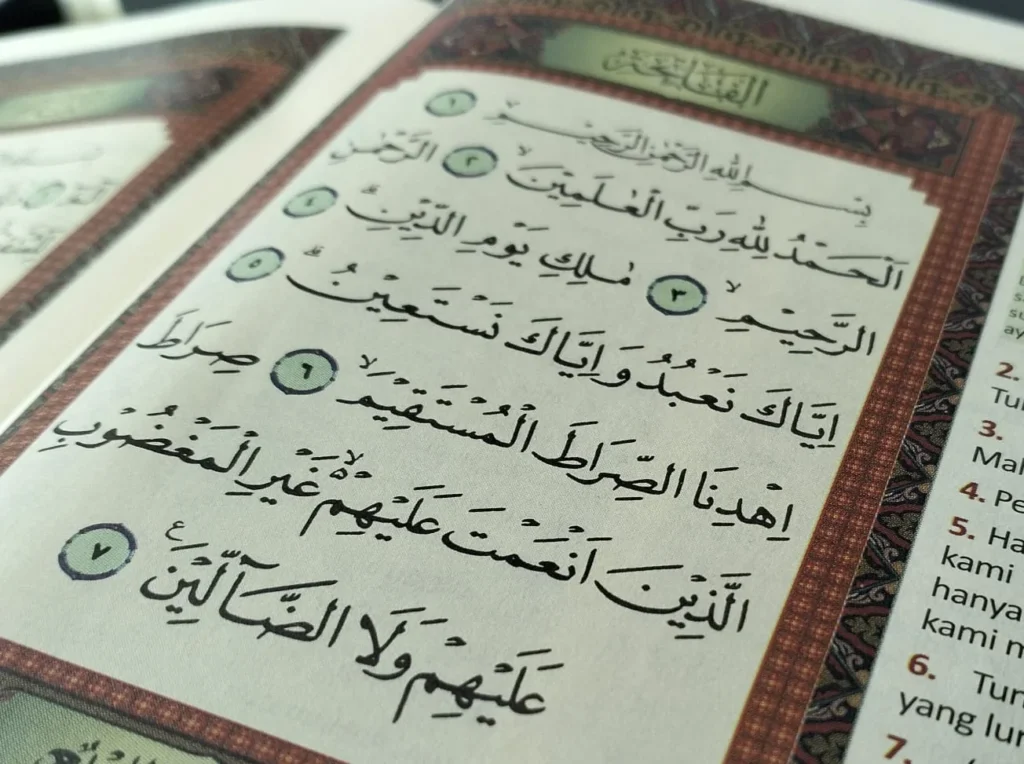 الفاتحة
بِسْمِ اللهِ الرَّحْمٰنِ الرَّحِيْمِ ۙ ١
اَلْحَمْدُ لِلّٰهِ رَبِّ الْعٰلَمِيْنَ ۙ ٢ الرَّحْمٰنِ
الرَّحِيْمِ ۙ ٣ مٰلِكِ يَوْمِ الدِّيْنِ ۗ ٤
اِيَّاكَ نَعْبُدُ وَاِيَّاكَ نَسْتَعِيْنُ ۗ ٥
اِهْدِنَا الصِّرَاطَ الْمُسْتَقِيْمَ ۙ ٦ صِرَاطَ
الَّذِيْنَ اَنْعَمْتَ عَلَيْهِمْ ۙ غَيْرِ الْمَغْضُوْبِ
عَلَيْهِمْ وَلَا الضَّاۤلِّيْنَ ࣖ ٧
2.
3.
4.
5.
kami
hanya
kami
6.
yang
7.